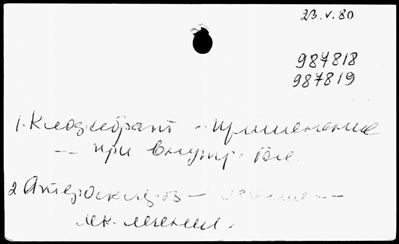 23.V.80
987818
987819
1. Клофибрат - применение
— при внутр. бол.
2 Атероскл-з — лечение —
лк. лечения.